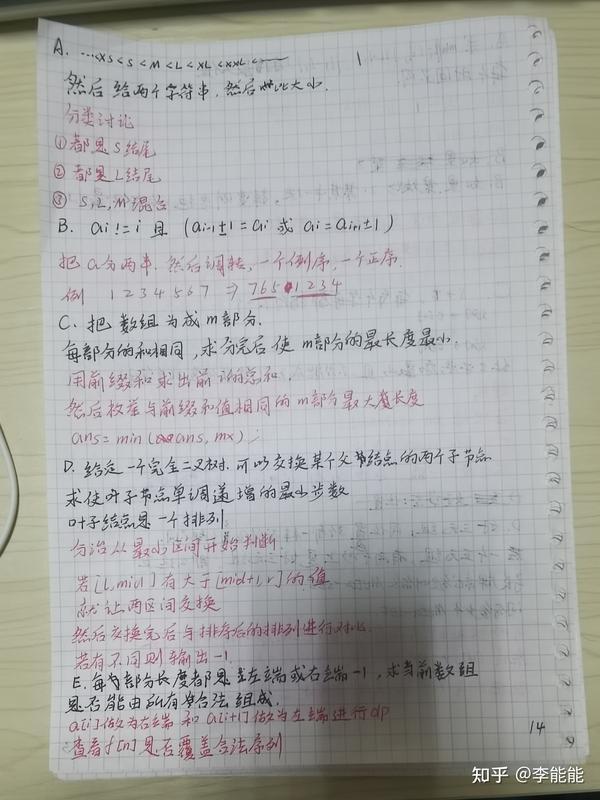 A. ...XS < S < M < L < XL < XXL < ...
然后给两个字符串,然后对比大小.
分类讨论
① 都是S结尾
② 都是L结尾
③ S,L,M混合
B. ai != i 且 (ai-1±1=ai 或 ai=ai+1±1)
把a分两串.然后调转,一个倒序,一个正序.
例 1 2 3 4 5 6 7 ⇒ 7 6 5 1 2 3 4
C. 把数组分成m部分.
每部分的和相同,求分完后使m部分的最长度最小.
用前缀和求出前i的总和.
然后枚举与前缀和值相同的m部分最大长度
ans = min(ans, mx);
D. 给定一个完全二叉树.可以交换某个父节结点的两个子节点
求使叶子节点单调递增的最小步数
叶子结点是一个排列
分治从最小区间开始判断.
若[l,mid]有大于[mid+1,r]的值
就让两区间交换
然后交换完后与排序后的排列进行对比.
若有不同则输出-1.
E. 每部分长度都是左端或右端-1,求当前数组
是否能由所有合法组成.
a[i]做为右端和a[i+1]做为左端进行dp
查看f[n]是否覆盖合法序列
14
知乎 @李能能